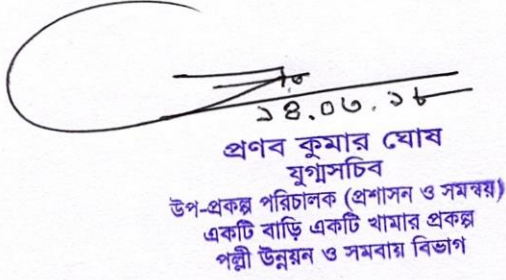 ১৪.০৩.১৮
প্রণব কুমার ঘোষ
যুগ্মসচিব
উপ-প্রকল্প পরিচালক (প্রশাসন ও সমন্বয়)
একটি বাড়ি একটি খামার প্রকল্প
পল্লী উন্নয়ন ও সমবায় বিভাগ